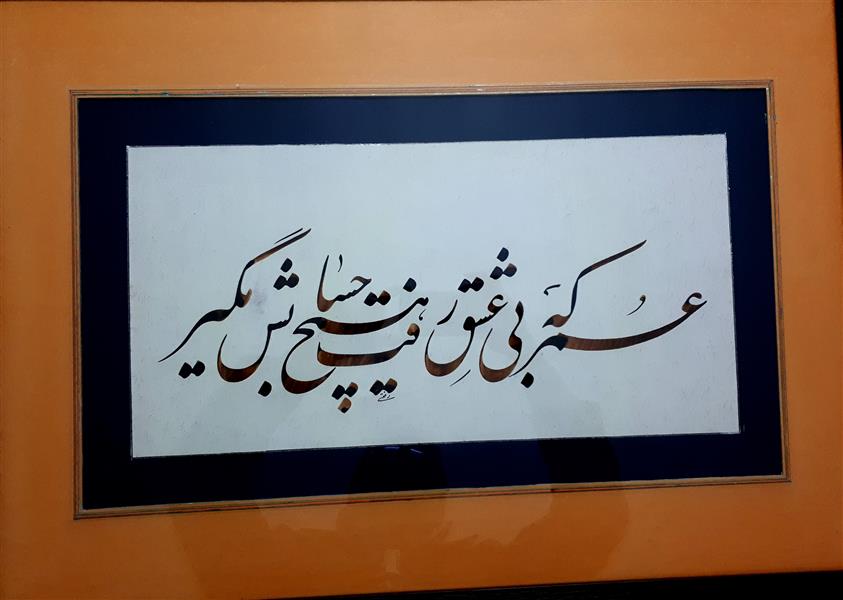 عمر که بی عشق رفت هیچ حسابش مگیر